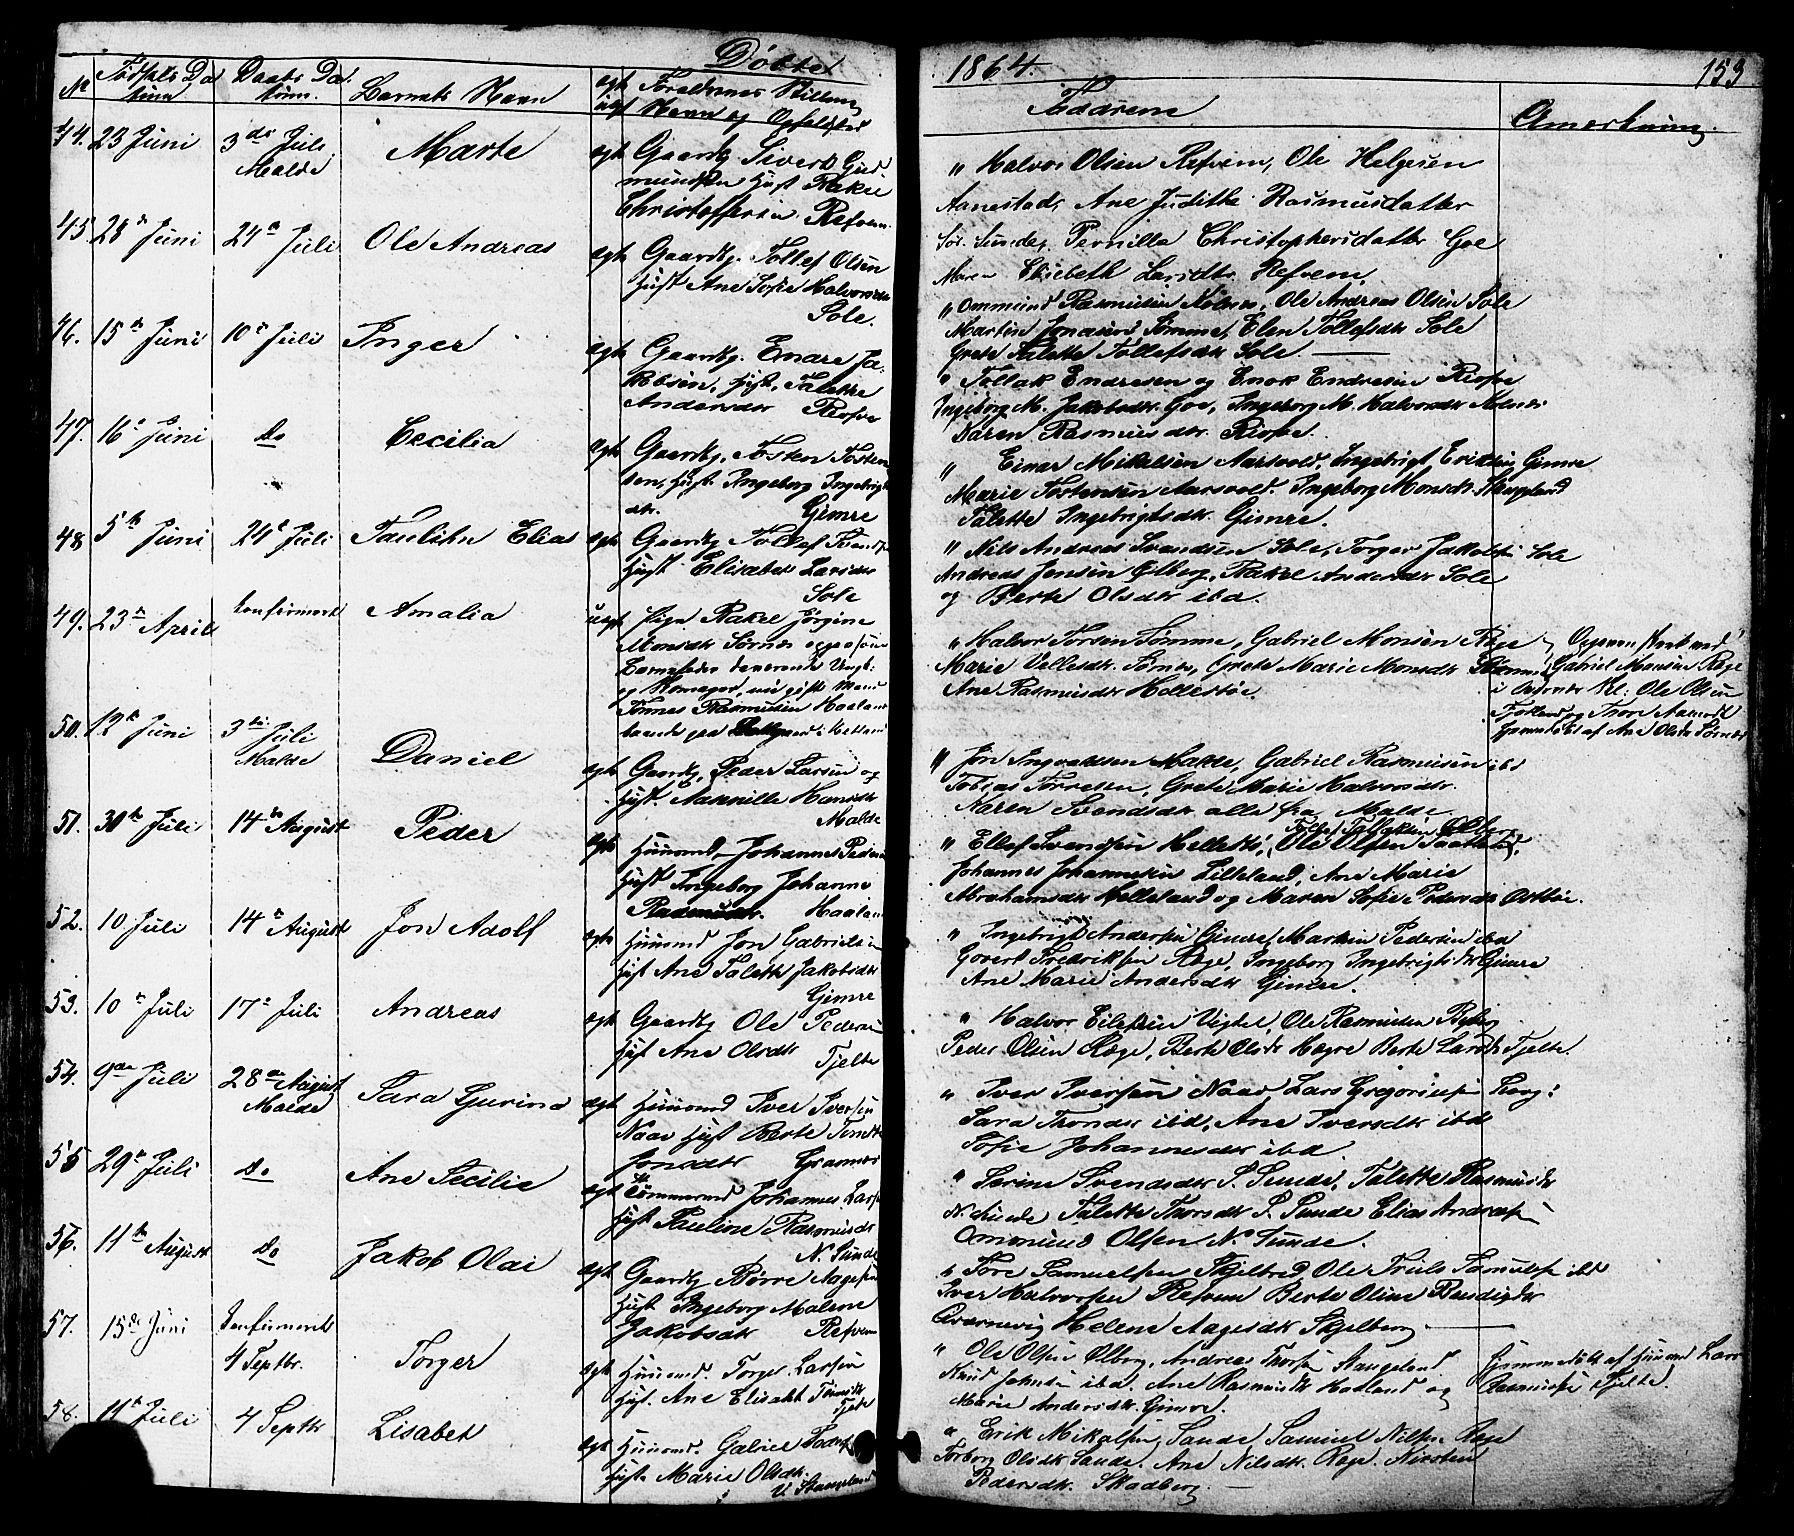 Døbte
1864.
153
No Fødsels Da Daabs Da Barnets Navn egt Forældrenes Stilling
tum tum uægt Navn og Opholdsted
Faddrene
Anmerkning.
44. 23 Juni 3die Juli Malde Marte egt. Gaardbr. Sivert Gud
mundsen Hust Rakel
Christoffersen Refvem
" Halvor Olsen Refvem, Ole Helgesen
Aanestad, Ane Judithe Rasmusdatter
Sør. Sunde, Pernille Christophersdatter Goe
Maren Elisebeth Larsdtr Refvem.
45 28de Juni 24de Juli Ole Andreas egt. Gaardbr. Tollef Olsen
Hust Ane Sofie Halvorsdtr
Sole.
" Ommund Rasmusen Kolnes, Ole Andreas Olsen Sole
Martin Jonasen Sømme, Elen Tollefsdtr Sole
Grete Talette Tollefsdtr Sole
46. 15de Juni 10de Juli Inger egt. Gaardbr. Endre Ja-
kobsen, Hust. Talette
Andersdtr Risfve
" Tollak Endresen og Enok Endresen Risfve
Ingeborg M. Jakobsdtr. Goe, Ingeborg M. Halvorsdtr Kolnes
Karen Rasmusdtr. Risfve.
47. 16de Juni Do Cecilia egt. Gaardbr. Tosten Tosten
sen, Hust. Ingeborg Ingebrigts
dtr. Gimre
" Einar Mikelsen Aarsvold, Ingebrigt Eriksen Gimre
Marie Tostensen Aarsvold. Ingeborg Monsdtr. Skeggland
Talette Ingebrigtsdtr. Gimre.
48 5te Juni 24de Juli Paulin Elias egt. Gaardbr Tollef Svendsen
Hust Elisabet Larsdtr
Sole
" Nils Andreas Svendsen Sole, Torger Jakobsen Sole
Andreas Jensen Ølberg, Rakel Andersdtr Sole
og Berte Olsdtr ibd.
49. 23de April Konfirmeret Amalia uegt Pige Rakel Jørgine
Monsdtr Sørnes
Barnefader daværende Ungk.
og , nu gifte Mand
Tønnes Rasmusen Haaland
boende paa i Helland
" Halvor Torsen Sømme, Gabriel Monsen Røge
Marie Vellesdtr. Sørnes, Grete Marie Monsdtr Sømme
Ane Rasmusdtr Hellestøe.
Gabriel Monsen Røge
Ole Olsen
Tjotland og Thore Aamodt
Hjemmedøbt af Ane Olsdtr Sørnes
50. 12te Juni 3die Juli Malde Daniel egt. Gaardbr. Peder Larsen og
Hust. Hansdtr
Malde
" Jon Ingvaldsen Malde, Gabriel Rasmusen ibd
Tobias Torresen, Grete Marie Halvorsdtr.
Karen Svendsdtr alle fra Malde
51. 30te Juli 14de August Peder egt. Huusmd. Johannes Pedersen
Hust Ingeborg Johanne
Rasmusdtr. Haaland
" Ellef Svendsen Hellestø,
Johannes Johannesen Lilleland, Ane Marie
Abrahamsdtr Helleland og Maren Sofie Pedersdtr
52. 10 Juli 14de August Jon Adolf egt. Huusmd Jon Gabrielsen
Hust Ane Talette Jakobsdtr
Gimre
" Ingebrigt Andersen Gimre, Martin Pedersen ibd
Govert Fredriksen Røge, Ingeborg Ingebrigtsdtr Gimre
Ane Marie Andersdtr Gimre.
53. 10de Juli 17de Juli Andreas egt Gaardbr Ole Pedersen
Hust Ane Olsdtr Tjelte
" Halvor Eilefsen Vigdel, Ole Rasmusen Byberg
Peder Olsen Røge, Berte Olsdtr Hægre Berte Larsdtr Tjelte.
54. 9de Juli 28de August Malde Sara Gurina egt. Huusmd Iver Iversen
Naar Hust Berte
Jonsdtr Grannes
" Iver Iversen Naar, Lars Gregoriusen
Sara Thorsdtr ibd, Ane Iversdtr ibd
Sofie Johannesdtr ibd.
55 29de Juli Do Ane Secilie egt Tømmermd Johannes Larsen
Hust Pauline Rasmusdtr
N. Sunde
" Serine Svendsdtr S. Sunde, Talette Rasmusdtr
N. Sunde Talette Thorsdtr S. Sunde Elias Andreasen
Ommund Olsen N. Sunde.
56. 11te August Do Jakob Olai egt. Gaardbr Børre Aagesen
Hust Ingeborg Malene
Jakobsdtr Refvem
" Tore Samuelsen Skjelbred Ole Truls Samuelsen ibd
Iver Halvorsen Refvem Berte Oline Bendigsdtr
Qværnevig Helene Aagesdtr Skjelbreg
57. 15de Juni Konfirmeret 4 Septbr. Torger egt. Huusmd. Torger Larsen
Hust. Ane Elisabet
Tjelte
" Ole Olsen Ølberg, Andreas Thorsen Stangeland
Knud Johnsen ibd. Ane Rasmusdtr Haaland og
Marie Andersdtr. Gimre.
Hjemmedøbt af Huusmd Lars
Rasmusen Tjelte.
58. 11te Juli 4 Septbr Lisabet egt. Huusmd. Gabriel
Hust. Marie Olsdtr.
V. Stangeland
" Erik Mikalsen Sande, Samuel Nilsen Røge
Torborg Olsdtr Sande. Ane Nilsdtr. Røge. Kirsten
Pedersdtr. Skadberg.